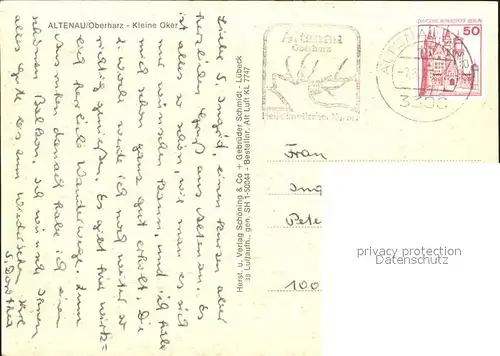 ALTENAU/Oberharz - Kleine Oker
Liebe S. Ingrid, einen kurzen aber
herzlichen Gruß aus Altenau. Es
ist alles so schön, wie man es sich
nur wünschen kann, und ich habe
mich schon ganz gut erholt. Die
2. Woche werde ich noch weiter so
richtig genießen. Es gibt hier wirk-
lich herrliche Wanderwege. Zum
Ausruhen danach habe ich einen
schönen Balkon. Ich wünsche Ihnen
alles Gute bis zum Wiedersehen Ihre
S. Dorothea
Herst. u. Verlag Schöning & Co + Gebrüder Schmidt - Lübeck
SH 1-50044 - Bestellnr. Alt Luft KL 7747
Altenau
Oberharz
Heilklimatischer Kurort
ALTENAU
DEUTSCHE BUNDESPOST BERLIN
50
Frau
Ing
Pete
100
privacy protection
oldthing.de